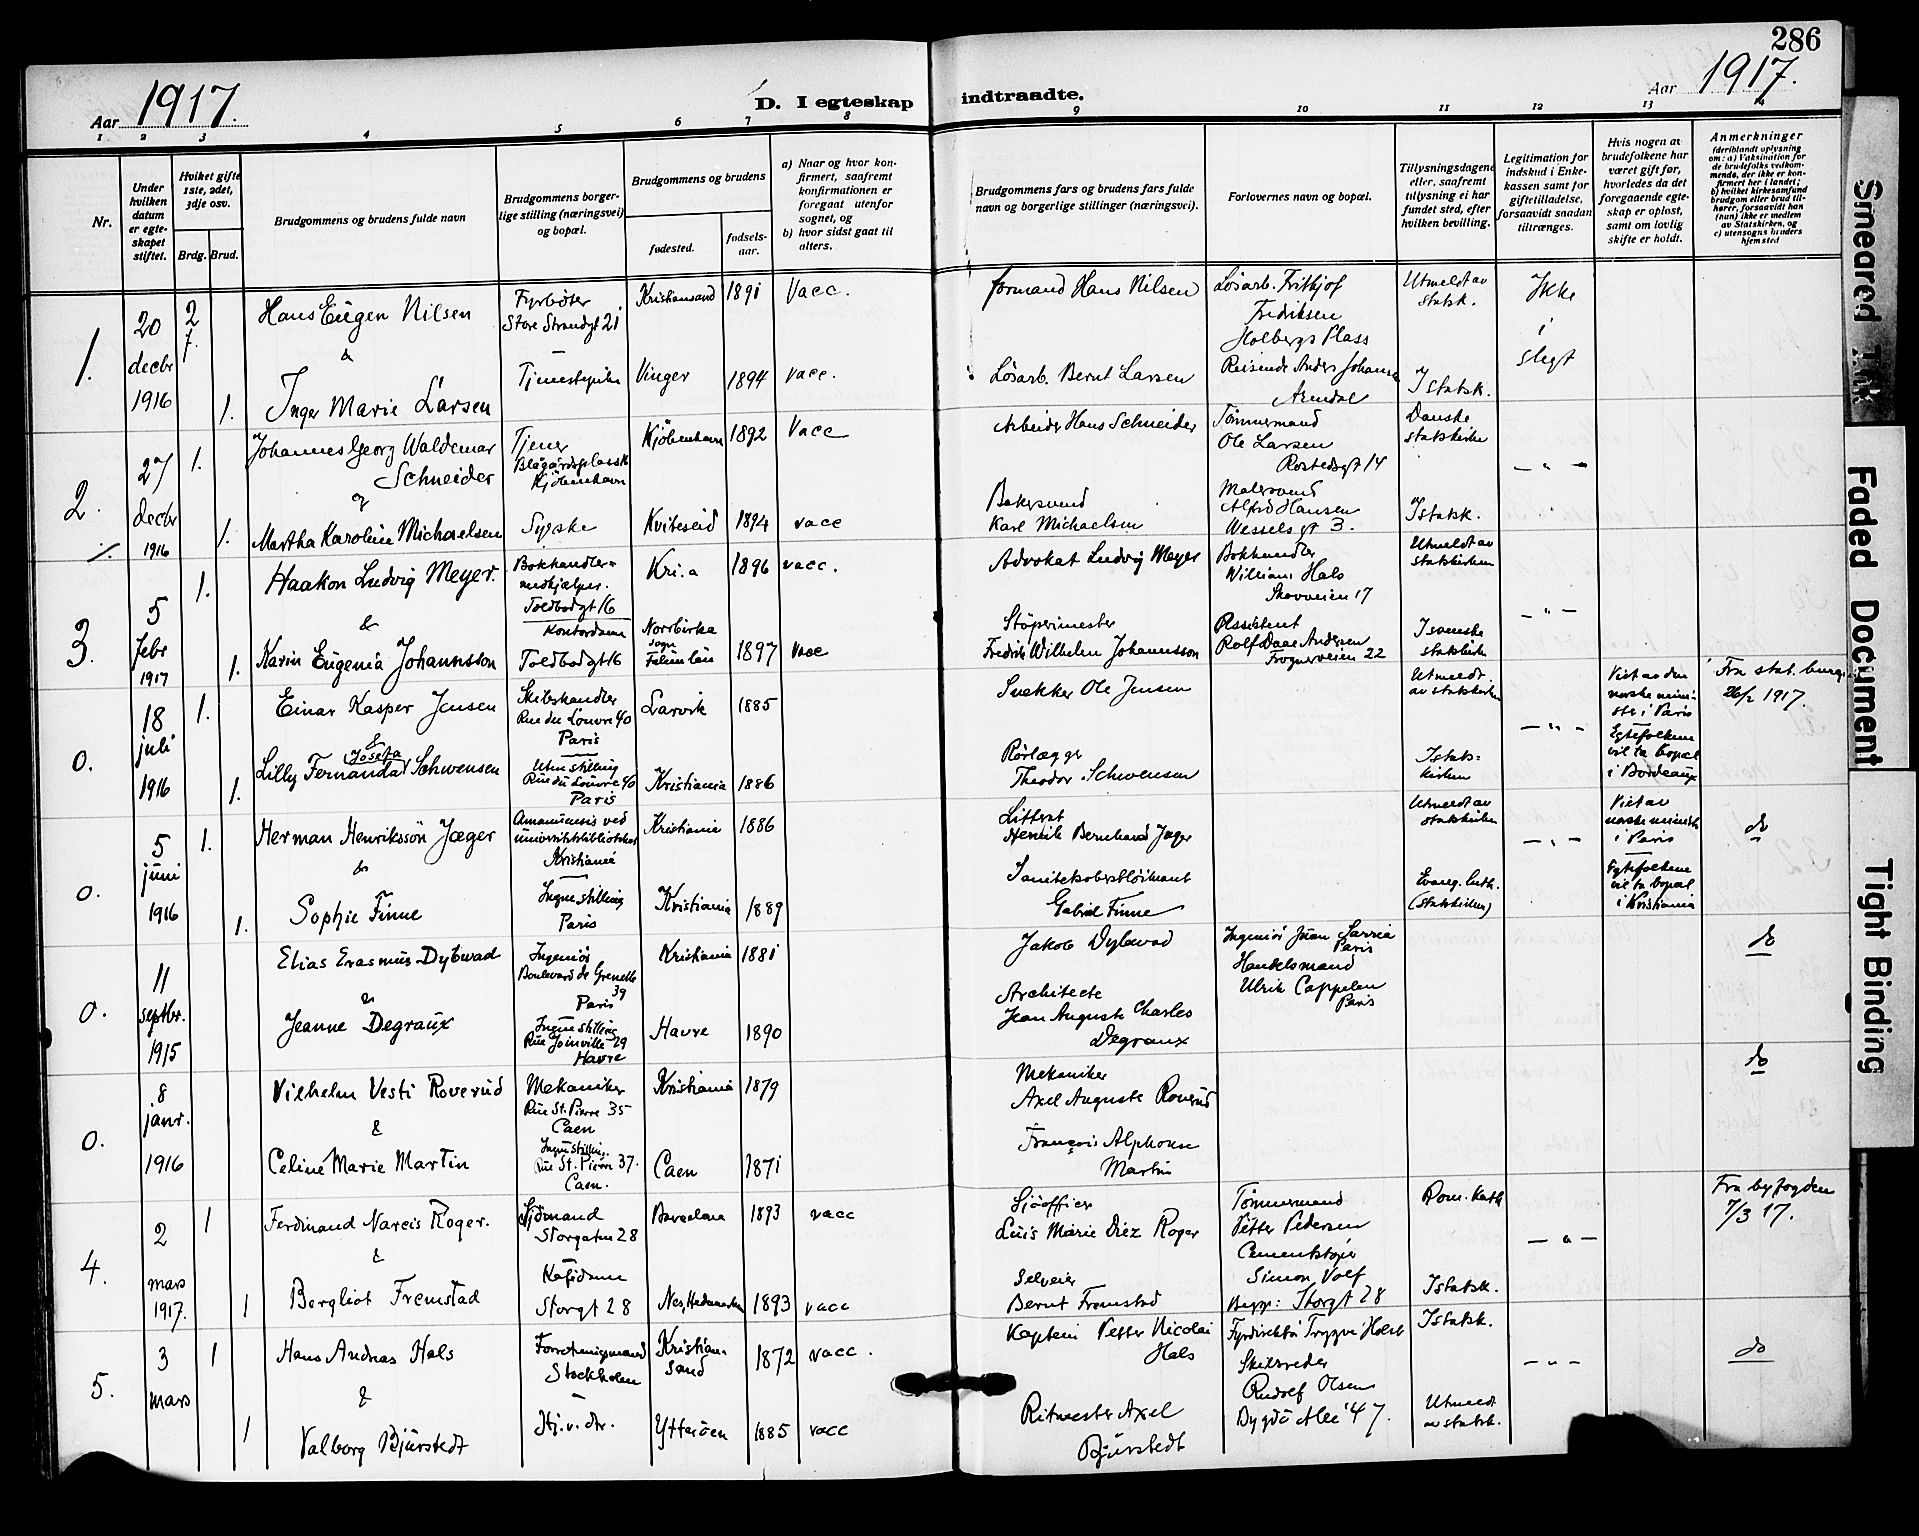 286
Aar 1917.
D. I egteskap indtraadte.
Aar 1917.
1 2 3 4 5 6 7 8 9 10 11 12 13 14
Nr.
Under hvilken datum er egteskapet stiftet.
Hviket gifte 1ste, 2det, 3dje osv.
Brdg. Brud.
Brudgommens og brudens fulde navn
Brudgommens borgerlige stilling (næringsvei) og bopæl.
Brudgommens og brudens
fødested.
fødselsaar.
a) Naar og hvor konfirmert, saafremt konfirmationen er foregaat utenfor sognet, og
b) hvor sidst gaat til alters.
Brudgommens fars og brudens fars fulde navn og borgerlige stillinger (næringsvei).
Forlovernes navn og bopæl.
Tillysningsdagene eller, saafremt tillysning ei har fundet sted, efter hvilken bevilling.
Legitimation for indskud i Enkekassen samt for giftetilladelse, forsaavidt saadan tiltrænges.
Hvis nogen av brudefolkene har været gift før, hvorledes da det foregaaende egteskap er opløst, samt om lovlig skifte er holdt.
Anmerkninger
(deriblandt oplysning om: a) Vaksination for de brudefolks vedkommende, der ikke er konfirmert her i landet; b) hvilket kirkesamfund brudgom eller brud tilhører, forsaavidt han (hun) ikke er medlem av Statskirken, og c) utensogns bruders hjemsted
1.
20 decbr 1916
2
Hans Eugen Nilsen
Fyrbøter
Store Strandgt 21
Kristiansand 1891 Vacc.
formand Hans Nilsen
Løsarb. Fritkjof
Fredriksen
Holbergs Plass
Utmeldt av
statsk.
Ikke
i
slegt
&
1. Inger Marie Larsen
Tjenestepike
Vinger 1894 vacc.
Løsarb. Bernt Larsen
Reisende Anders Johansen
Arendal
I statsk.
2.
27 decbr 1916
1. Johannes Georg Waldemar
Schneider
Tjener
Blågårdsplass
Kjöbenhavn
Kjöbenhavn 1892 Vacc
Arbeider Hans Schneider
Tømmermand
Ole Larsen
Rostedsgt 14
Danske
statskirke
— " —
og
1. Martha Karoline Michaelsen
Syerske
Kviteseid 1894 vacc
Bakersvend
Karl Michaelsen
Malersvend
Alfred Hansen
Wessels gt 3.
I statsk.
3.
5 febr 1917
1. Haakon Ludvig Meyer.
Bokhandler-
medhjælper.
Toldbodgt 16
Kri.a 1896 vacc.
Advokat Ludvig Meyer
Bokhandler
William Hals
Skovveien 17
Utmeldt av
statskirken
— " —
&
1. Karin Eugenia Johannsson
Kontordame
Toldbodgt 16
Norrbirke
sogn
1897 vacc
Støperimester
Fredrik Wilhelm Johannsson
Assistent
Rolf Daae Andersen
Frognerveien 22
I svenske
statskirke
0.
18 juli 1916
1. Einar Kasper Jensen
Skibshandler
Rue du Louvre 40
Paris
Larvik 1885
Snekker Ole Jensen
Utmeldt
av statskirken
— " —
Viet av den
norske mini-
ster i Paris
Egtefolkene
vil ta bopæl
i Bordeaux
Fra stat. burg.
26/2 1917.
&
1. Lilly Fernanda Josefa Schwensen
Uten stilling
Rue du Louvre 40
Paris
Kristiania 1886
Rørlægger
Theodor Schwensen
I stats-
kirken
0.
5 juni 1916
1. Herman Henriksson Jæger
Amanuensis ved
universitetsbiblioteket
Kristiania
Kristiania 1886
Litterat
Henrik Bernhard Jæger
Utmeldt av
statskirken
— " —
Viet av
norske minister
i Paris
Egtefolkene
vil ta bopæl
i Kristiania
do
&
1. Sophie Finne
Ingen stilling
Paris
Kristiania 1889
Gabriel Finne
Evang. luth.
(statskirken)
0.
11 septbr. 1915
Elias Erasmus Dybwad
Ingeniør
Boulevard de Grenelle
39
Paris
Kristiania 1881
Jakob Dybwad
Ingeniør Juan Sarria
Paris
Handelsmand
Ulrik Cappelen
Paris
do
&
Jeanne Degraux
Ingen stilling
Rue Joinville 29
Havre
Havre 1890
Architecte
Jean Auguste Charles
Degraux
0.
8 janr. 1916
Vilhelm Vesti Roverud
Mekaniker
Rue St. Pierre 35
Caen
Kristiania 1879
Mekaniker
Axel Auguste Roverud
do
&
Celine Marie Martin
Ingen stilling.
Rue St. Pierre 37.
Caen.
Caen 1871
François Alphonse
Martin
4.
2 mars 1917.
1 Ferdinand Narcis Roger.
Sjømand
Storgaten 28
Barcelona 1893 vacc
Sjöoffier
Luis Marie Diez Roger
Tømmermand
Petter Pedersen
Cementstøper
Simon Volf
Begge: Storgt 28
Rom. Kath
— " —
Fra byfogden
7/3 17.
&
1 Bergliot Fremstad
Kafédame
Storgt 28
Nes, Hedemarken 1893 vacc
Selveier
Bernt Fremstad
I statsk.
5.
3 mars
1 Hans Andreas Hals
Forretningsmand
Stockholm
Kristian-
sand 1872 vacc.
Kaptein Petter Nicolai
Hals
Fyrdirektør Trygve Holst
Skibsreder
Rudolf Olsen
Bygdö Allé 47.
I statsk.
— " —
do
&
1 Valborg Bjurstedt
Hj.v. dr.
Ytterøen 1885 vacc
Ritmester Axel
Bjurstedt
Utmeldt
av statsk.
Smeared Ink
Faded Document
Tight Binding